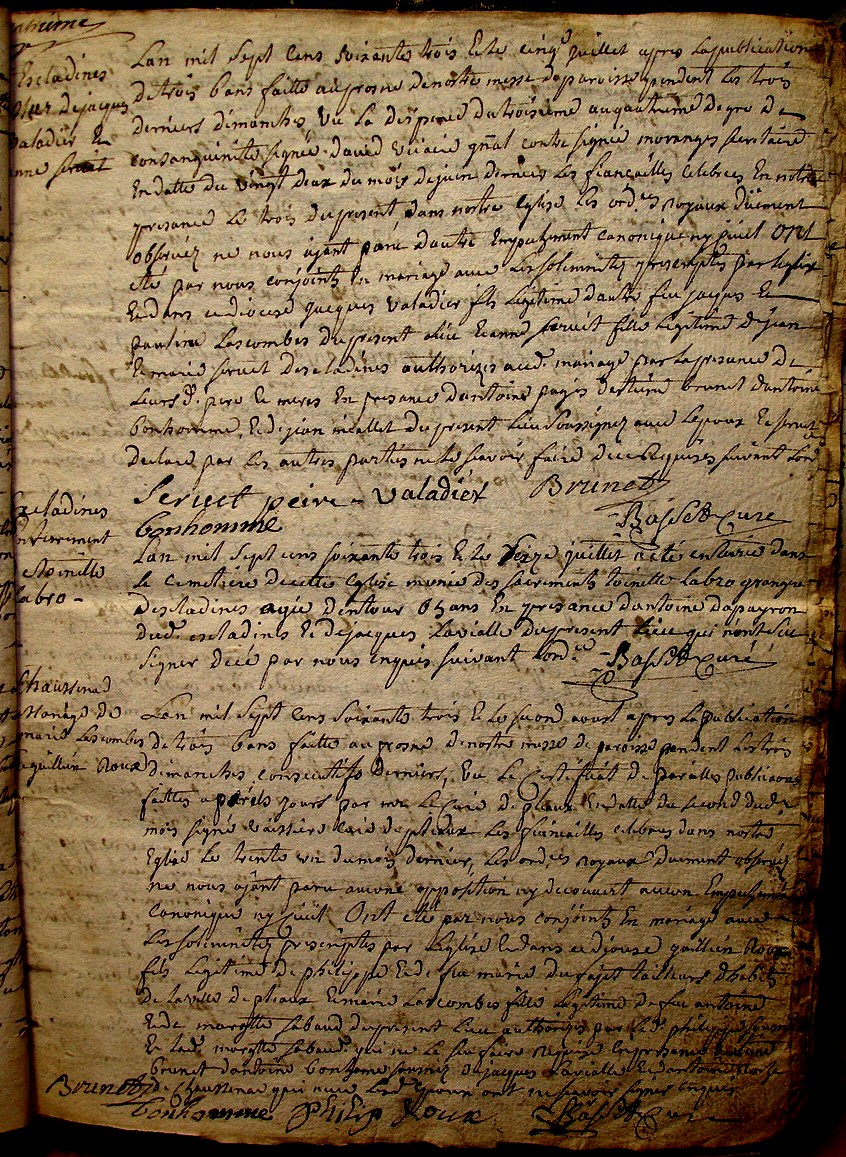 Escladines
de jacques
valadier et
anne seruet
Lan mil sept cens soixante trois et le cinqe juillet apres la publication
de trois bans faitte au prosne de nostre messe de paroisse pendent les trois
derniers dimanches vu la dispense du troisieme au quatrieme degre de
consanguinite signée david vicaire gñal contre signée moranges secretaire
en datte du vingt deux du mois de juin dernier les fiançailles celebrées en notre
presance le trois du present dans nostre eglise les ordces royaux düement
observéz ne nous ayant paru dautre empechment canonique ny civil ont
eté par nous conjoints en mariage avec les solemnites prescriptes par leglise
et dans ce diocese jacques valadier fils legitime dautre feu jacques et
Lascombes du present lieu et anne seruet fille legitime de jean
et marie seruet descladines authorizes aud. mariage par la presance de
leurs d. pere et meres en presance dantoine pagis brunet dantoine
bonhomme, et de jean du present lieu soussignez avec lepoux et seruet
declaré par les autres parties ne le scavoir faire de ce requises suivant lord
Seruet peire valadier Brunet
bonhomme Basset curé
Escladines
enterrement
de toinette
labro
Lan mil sept cens soixante trois et le juillet a été enterrée dans
le cemetiere de cette eglise munie des sacrements toinette labro
descladines agée dentour 65 ans en presance dantoine dapeyron
dud. escladines et de jacques Lavialle du present lieu qui nont scu
signer de ce par nous enquis suivant lordce Basset curé
Chaussenac
Mariage de
marie Lascombes
et guillien Roux
Lan mil sept cens soixante trois et le second aoust apres la publication
de trois bans faitte au prosne de nostre messe de paroisse pendent les trois
dimanches consecutifs derniers, vu le certificat de pareilles publicaons
faittes a pareils jours par mr le curé de pleaux en datte du second dud.
mois signé vaissiere curé de pleaux les fiancailles celebrees dans nostre
eglise le trente un du mois dernier, les ordces royaux duement observéz
ne nous ayant paru aucune opposition ny decouvert aucun empechment
canonique ny civil ont eté par nous conjoints en mariage avec
les solemnites prescriptes par leglise et dans ce diocese guillien Roux
fils legitime de philippe et de feu marie dufayet tailleurs dhabits
de la ville de pleaux et marie Lascombes fille legitime de feu antoine
et de sabaud du present lieu authorizés par led. philippe
et lad. sabaud qui ne le scu faire requise en presance
brunet dantoine bonhomme de jacques lavialle et dantoine
de chaussenac qui avec led. epoux ont ne scavoir signer enquis
Brunet
bonhomme Philip Roux Basset curé